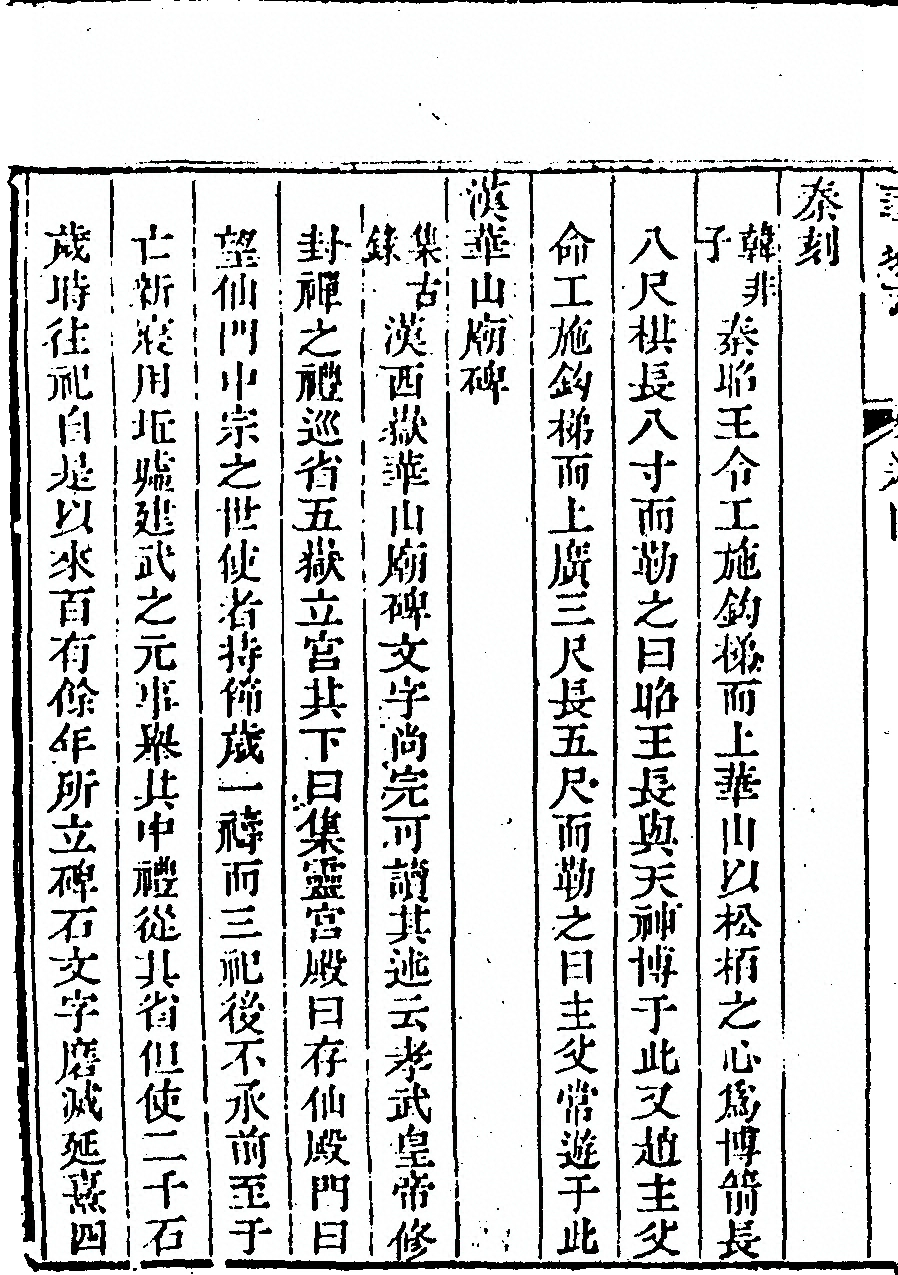 秦刻
韓非子秦昭王令工施鈎梯而上華山以松栢之心爲博箭長
八尺棋長八寸而勒之曰昭王長與天神博于此又趙主父
命工施鈎梯而上廣三尺長五尺而勒之曰主父常遊于此
漢華山廟碑
集古錄漢西嶽華山廟碑文字尚完可讀其述云孝武皇帝修
封禪之禮巡省五嶽立宮其下曰集靈宮殿曰存仙殿門曰
望仙門中宗之世使者持節歲一禱而三祀後不承前至于
亡新寖用坵墟建武之元事舉其中禮從其省但使二千石
歲時往祀自是以來百有餘年所立碑石文字磨滅延熹四